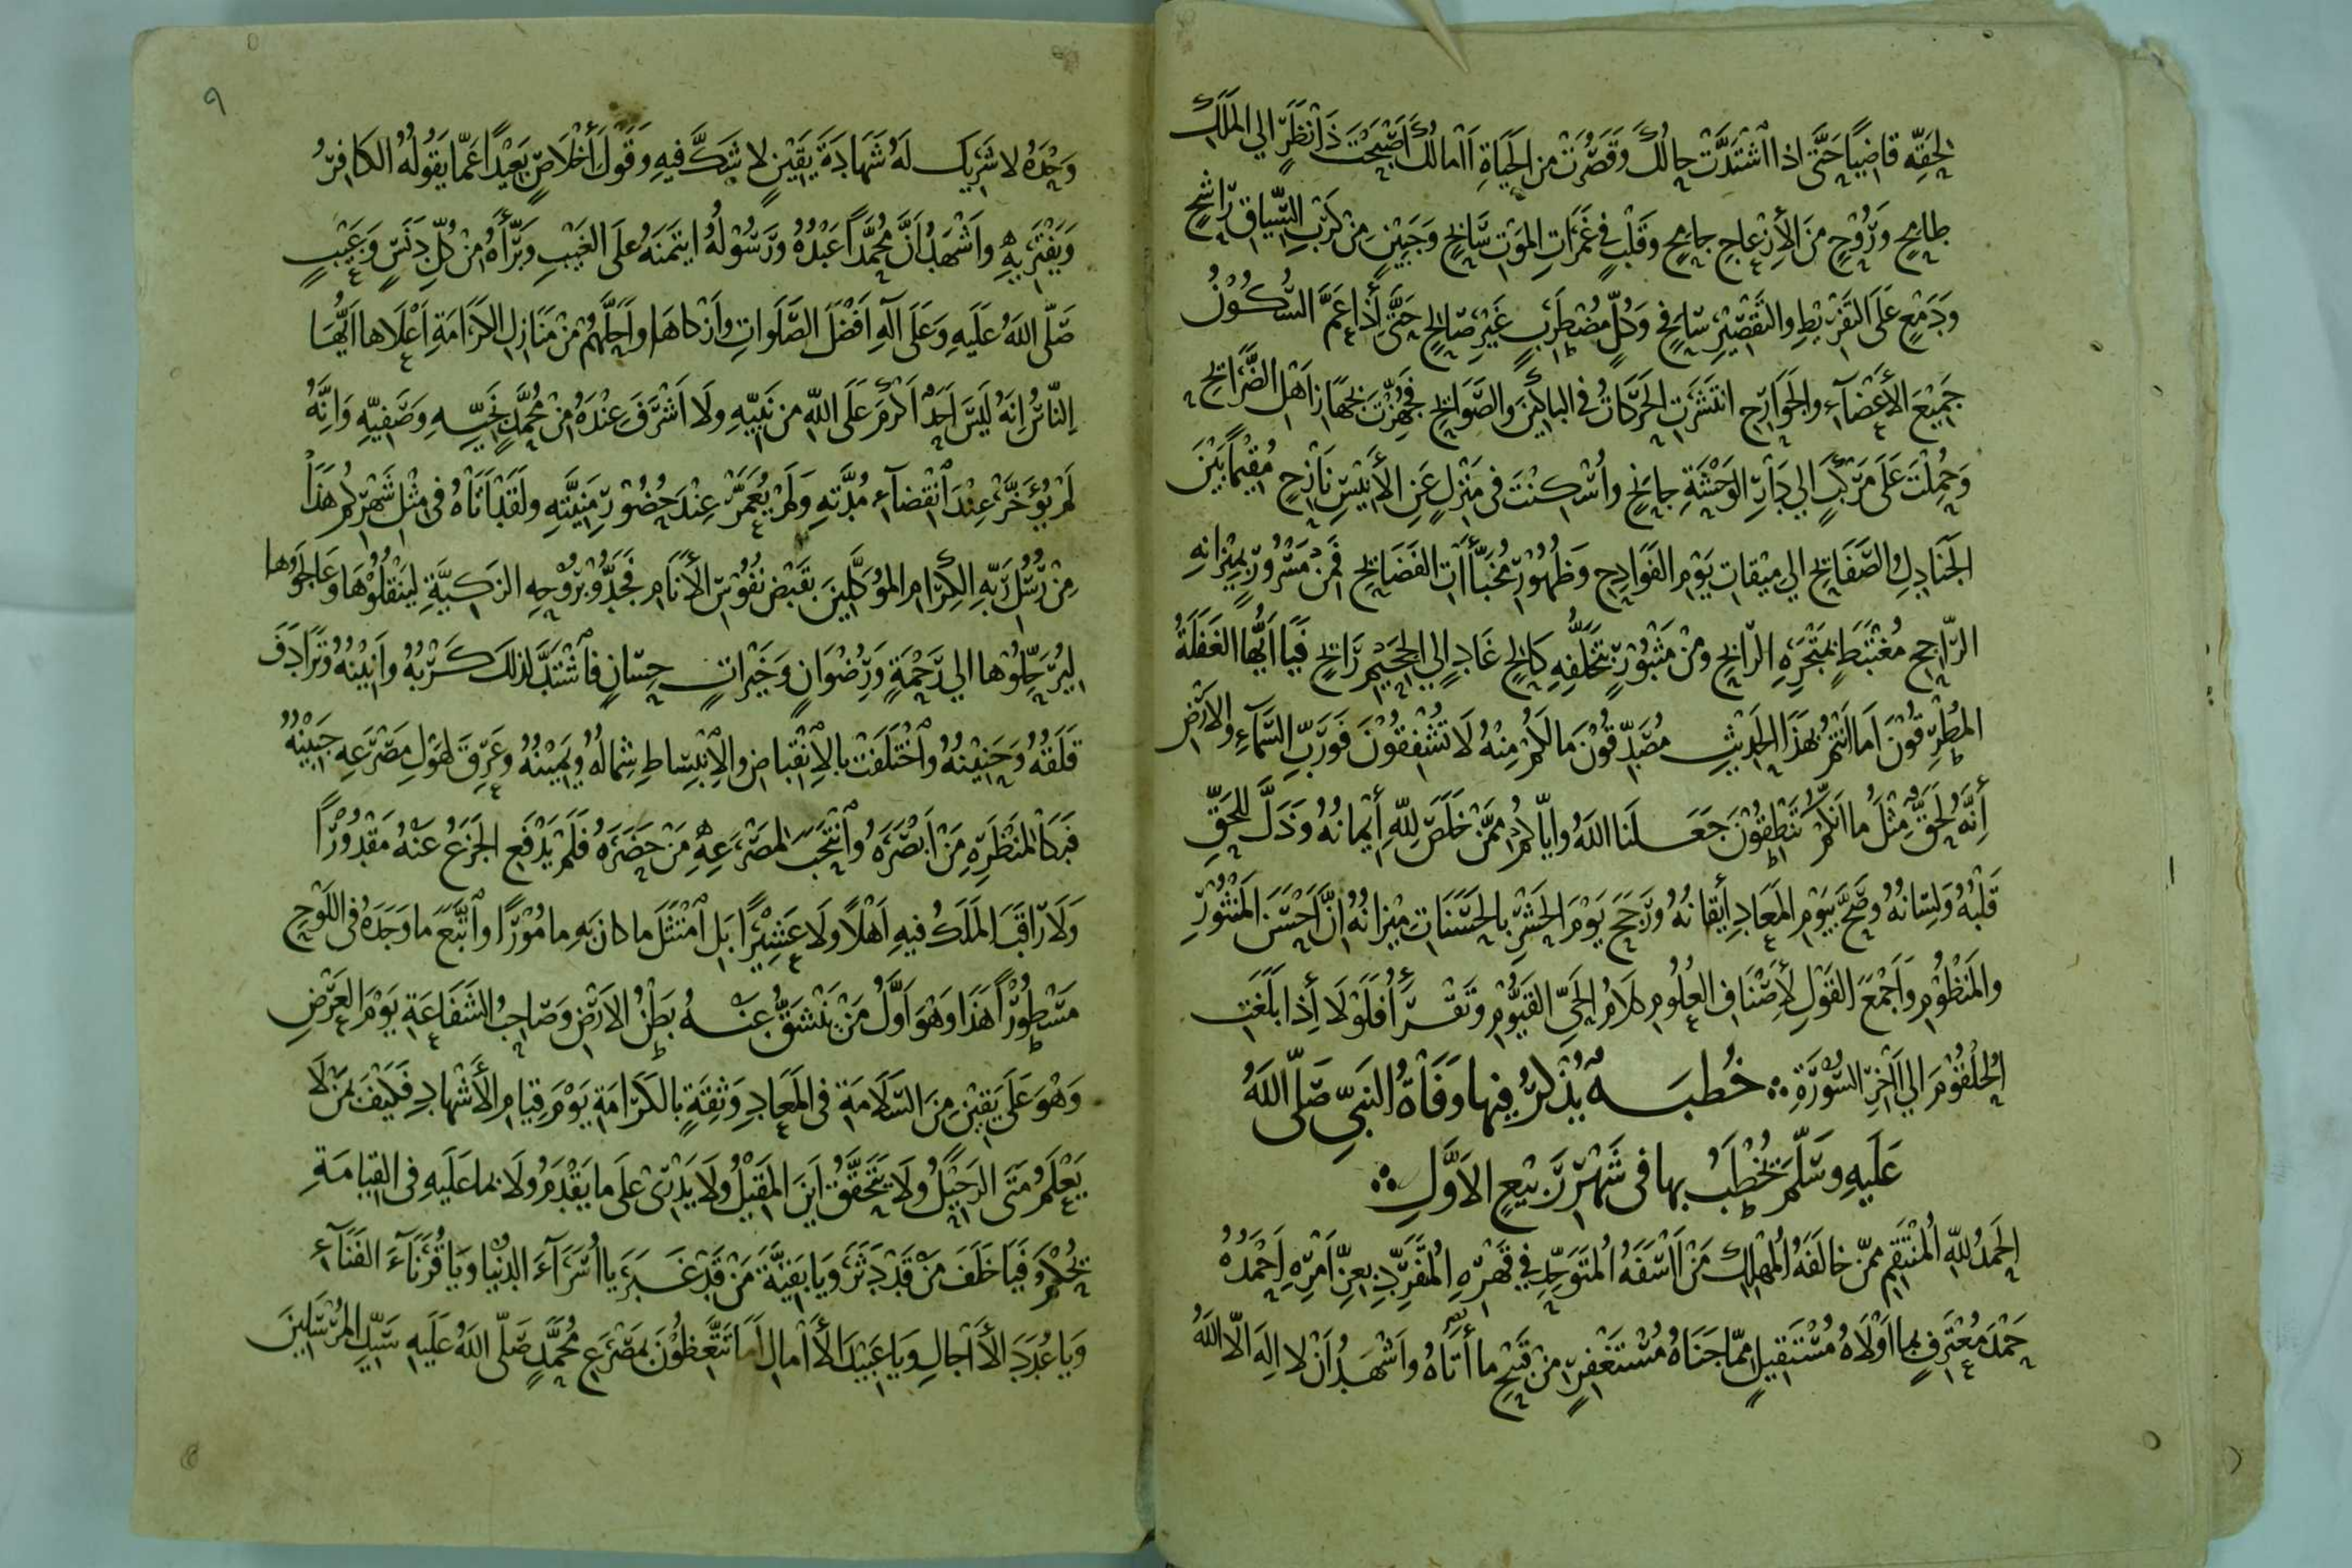 لحقه قاضيا حتى اذا اشتدت حالك وقصرت من الحياة اامالك أصبحت ذا نظر الي الملك
طامح وروح من الأزعاج جامح وقلب في غمرات الموت سابح وجبين من كرب السياق راشح
ودمع على التفريط والتقصير سافح وكل مضطرب غير صالح حتى أذا عم السكون
جميع الأعضآء والجوارح انتشرت الحركات في الباكين والصوايح فجهزت بجهاز اهل الضرايح
وحملت على مركب الي دار الوحشة جانح واسكنت في منزل عن الأنيس نازح مقيما بين
الجنادل والصفايح الي ميقات يوم الفوادح وظهور مخبأات الفضايح فمن مسرور بميزانه
الراجح مغتبط بمتجره الرابح ومن مثبور بتخلفه كالح غاد الي الجحيم رايح فيا ايها الغفلة
المطرقون اما انتم بهذا الحديث مصدقون ما لكم منه لا تشفقون فورب السمآء والارض
أنه لحق مثل ما انكم تنطقون جعلنا الله واياكم ممن خلص لله أيمانه وذل للحق
قلبه ولسانه وصح بيوم المعاد أيقانه ورجح يوم الحشر بالحسنات ميزانه ان احسن المنثور
والمنظوم واجمع القول لأصناف العلوم كلام الحي القيوم وتقرأ فلولا أذا بلغت
الحلقوم الي ااخر السورة خطبة يذكر فيها وفاة النبي صلى الله
عليه وسلم يخطب بها في شهر ربيع الاول
الحمد لله المنتقم ممن خالفه المهلك من ااسفه المتوحد في قهره المتفرد بعز امره احمده
حمد معترف بما اولاه مستقيل مما جناه مستغفر من قبح ما أتاه واشهد ان لا اله الا الله
٩
وحده لا شريك له شهادة يقين لا شك فيه وقول أخلاص بعيدا عما يقوله الكافر
ويفتريه واشهد ان محمدا عبده ورسوله ايتمنه على الغيب وبرأه من كل دنس وعيب
صلى الله عليه وعلى آله افضل الصلوات وازكاها واحلهم من منازل الكرامة اعلاها ايها
الناس انه ليس احد اكرم على الله من نبيه ولا اشرف عنده من محمد نجيه وصفيه وانه
لم يؤخر عند انقضآء مدته ولم يعمر عند حضور منيته ولقد اتاه في مثل شهركم هذا
من رسل ربه الكرام الموكلين بقبض نفوس الأنام فجدوا بروحه الزكية لينقلوها وعالجوها
ليرحلوها الي رحمة ورضوان وخيرات حسان فاشتد لذلك كربه وانينه وترادف
قلقه وحنينه واختلفت بالانقباض والانبساط شماله ويمينه وعرق لهول مصرعه جبينه
فبكا لمنظره من ابصره وانتحب لمصرعه من حضره فلم يدفع الجزع عنه مقدورا
ولا راقب الملك فيه اهلا ولا عشيرا بل امتثل ما كان به مامورا واتبع ما وجده في اللوح
مسطورا هذا وهو اول من تنشق عنه بطن الارض وصاحب الشفاعة يوم العرض
وهو على يقين من السلامة في المعاد وثقة بالكرامة يوم قيام الأشهاد فكيف بمن لا
يعلم متى الرحيل ولا يتحقق اين المقيل ولا يدرى على ما يقدم ولا بما عليه في القيامة
يحكم فيا خلف من قد دثر ويا بقية من قد غبر يا اسرآء الدنيا ويا قرنآء الفنآء
ويا عدد الأاجال ويا عبيد الأامال اما تتعظون بمصرع محمد صلى الله عليه سيد المرسلين